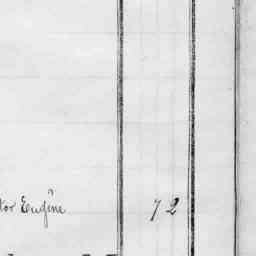 tor Engine 72